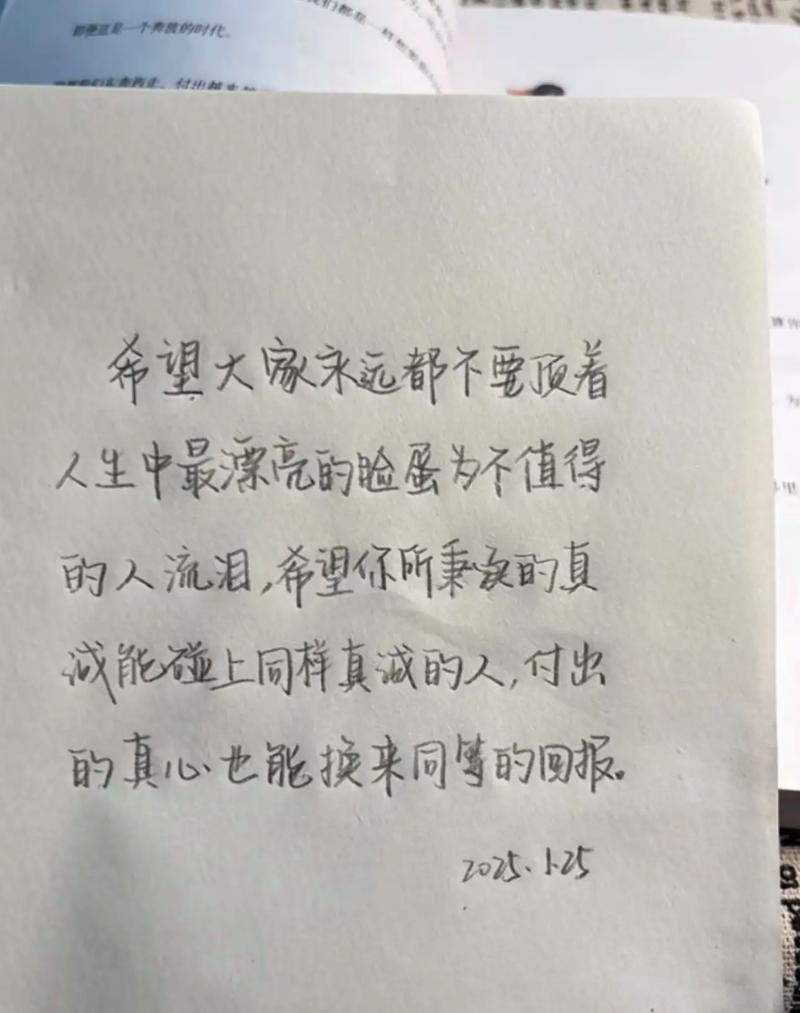 即便这是一个奔波的时代。
希望大家永远都不要顶着
人生中最漂亮的脸蛋为不值得
的人流泪,希望你所秉家的真
诚能碰上同样真诚的人,付出
的真心也能换来同等的回报。
2025.1.25